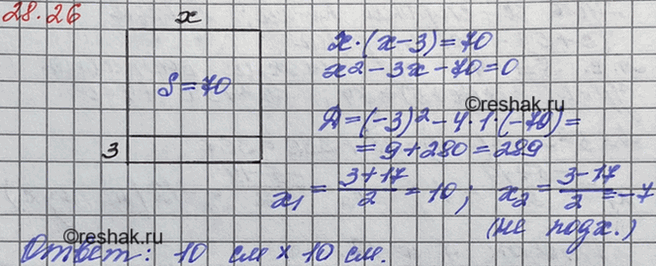 28.26
x
S = 70
3
x·(x-3)=70
x2-3x-70=0
©reshak.ru
Д=(-3)2-4·1·(-70)=
=9+280=289
x1=3+17/2=10; x2=3-17/2=-7
(не подх.)
©reshak.ru
Ответ: 10 см × 10 см.